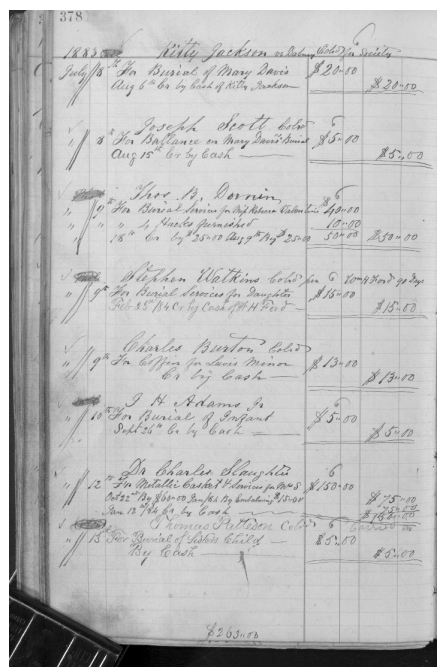 378
1883 Kitty Jackson Cold for Society
July 8th For Burial of Mary Davis $20.00
Aug 6th Cr by Cash of Kitty Jackson $20.00
Joseph Scott Cold 6
" 8th For Ballance on Mary Davis Burial $5.00
Aug 15th Cr by Cash $5.00
Thos B. Dornin 6
" 9th For Burial Services for Miss Valentine $40.00
" " " 4 Hacks furnished 10.00
18th Cr by $25.00 Aug 9th By $25.00 50.00 $50.00
Stephen Watkins Cold 6
" 9th For Burial Services for Daughter $15.00
Feb 25th 84 Cr by Cash of H Ford $15.00
Charles Burton Cold
" 9th For Coffin for Lewis Minor $13.00
Cr by Cash $13.00
J H Adams Jr 6
" 10th For Burial of Infant $5.00
Sept 26th Cr by Cash $5.00
Dr Charles Slaughter 6
" 12th For Metallic Casket & Services for Mrs S $150.00
Oct 22nd By $60.00 By $15.00 $75.00
Jan 12th 84 Cr by Cash 75.00
Thomas Patteson Cold 6
" 15 For Burial of Child $5.00
By Cash $5.00
$263.00